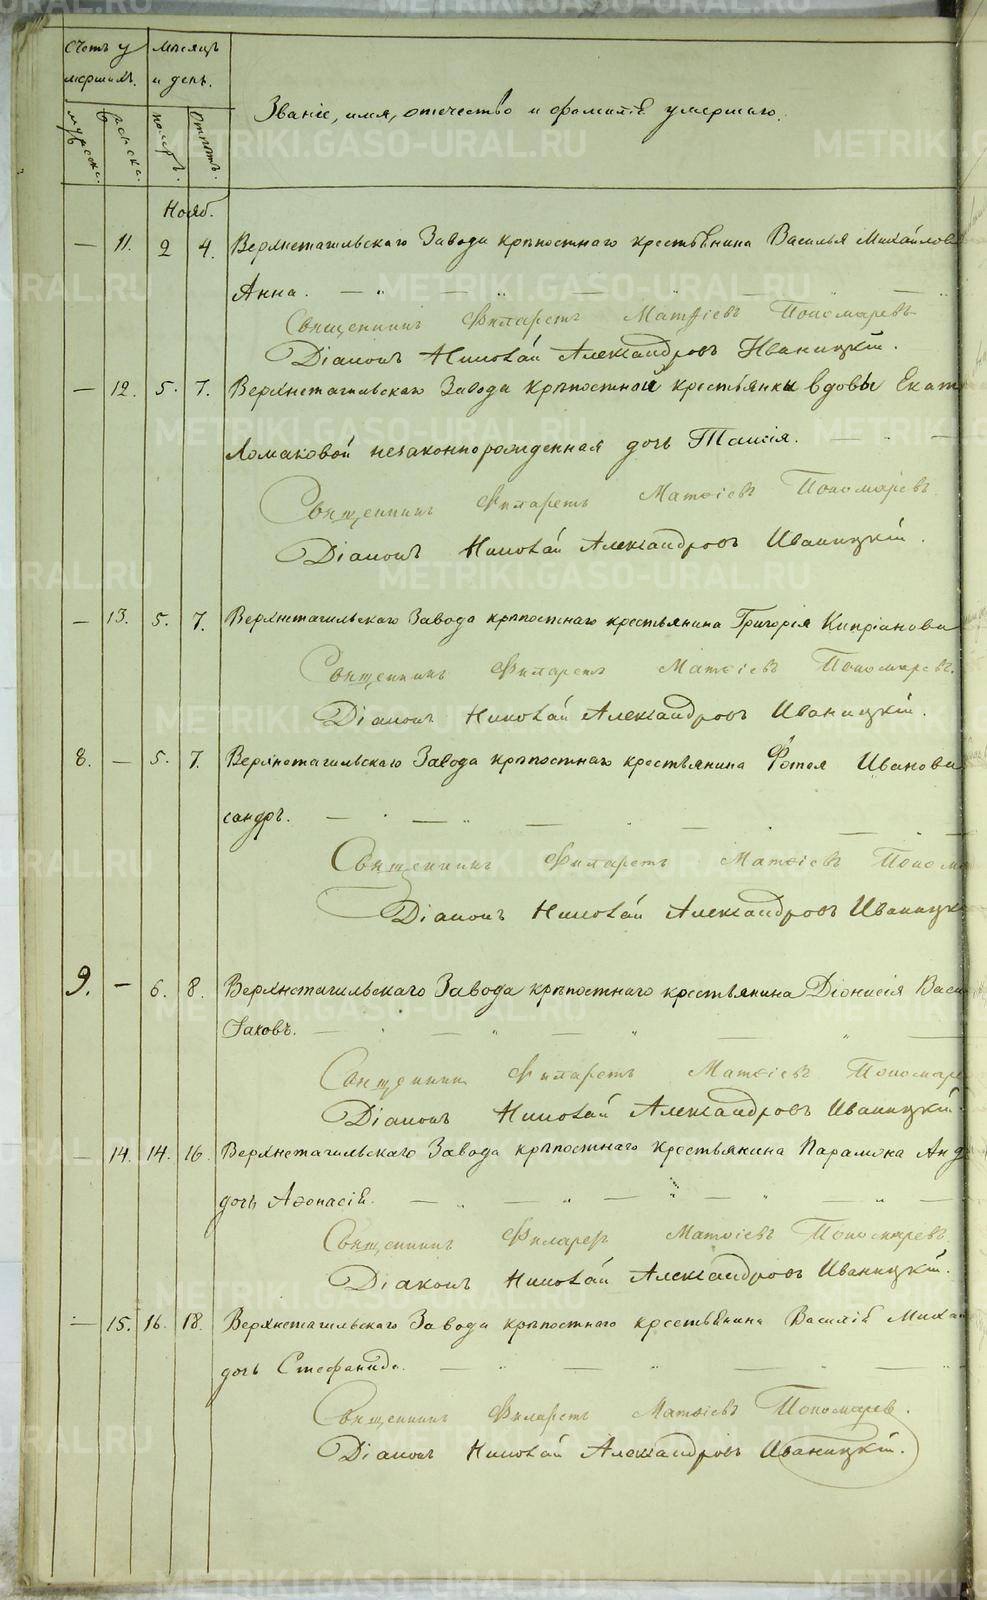 Счетъ у
мершихъ.
Мѣсяцъ
и день.
мужеска.
женска.
померъ.
Отпѣтъ.
Званіе, имя, отчество и фамилія умершаго.
Нояб.
— 11. 2 4. Верхнетагильскаго Завода крѣпостнаго крестьянина Василья Михайлов
Анна. — „ — „ —
Священникъ Филаретъ Матѳіевъ Пономаревъ
Діаконъ Николай Александровъ Иваницкій.
— 12. 5. 7. Верхнетагильскаго Завода крѣпостной крестьянки вдовы Екат
Ломаковой незаконнорожденная дочь Таисія. —
Священникъ Филаретъ Матѳіевъ Пономаревъ
Діаконъ Николай Александровъ Иваницкій.
— 13. 5. 7. Верхнетагильскаго Завода крѣпостнаго крестьянина Григорія Кипріанова
Священникъ Филаретъ Матѳіевъ Пономаревъ.
Діаконъ Николай Александровъ Иваницкій.
8. — 5. 7. Верхнетагильскаго Завода крѣпостнаго крестьянина Фотея Иванова
сандръ. — „ — „ — „ —
Священникъ Филаретъ Матѳіевъ Поном
Діаконъ Николай Александровъ Иваницк
9. — 6. 8. Верхнетагильскаго Завода крѣпостнаго крестьянина Діонисія Васи
Іаковъ. — „ — „ — „ —
Священникъ Филаретъ Матѳіевъ Пономаре
Діаконъ Николай Александровъ Иваницкій.
— 14. 14. 16. Верхнетагильскаго Завода крѣпостнаго крестьянина Парамона Анд
дочь Аѳонасія. — „ — „ — „ — „ —
Священникъ Филарет Матѳіевъ Пономаревъ
Діаконъ Николай Александровъ Иваницкій.
— 15. 16. 18. Верхнетагильскаго Завода крѣпостнаго крестьянина Василія Миха
дочь Стефанида. — „ — „ — „ —
Священникъ Филаретъ Матѳіевъ Пономарев.
Діаконъ Николай Александровъ Иваницкій.
METRIKI.GASO-URAL.RU